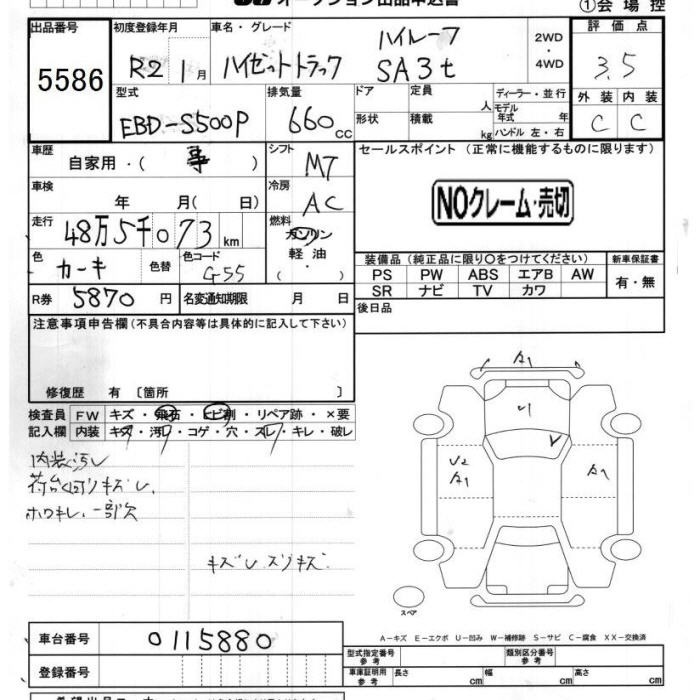 オークション出品申込書
①会場控
出品番号
5586
初度登録年月
R2 1月
車名・グレード
ハイルーフ
ハイゼットトラック SA3t
2WD
・
4WD
評価点
3.5
型式
EBD-S500P
排気量
660cc
ドア
定員
人
ディーラー・並行
モデル
年式 年
形状
積載
kg
ハンドル 左・右
外装 内装
C C
車歴
自家用・( 事 )
シフト
MT
セールスポイント (正常に機能するものに限ります)
車検
年 月( 日)
冷房
AC
NOクレーム・売切
走行
48万5千073km
燃料
ガソリン
軽油
・( )
色
カーキ
色替
色コード
G55
装備品(純正品に限り〇をつけてください)
新車保証書
PS PW ABS エアB AW
SR ナビ TV カワ
有・無
R券 5870円
名変通知期限 月 日
後日品
注意事項申告欄(不具合内容等は具体的に記入して下さい)
修復歴 有 〔箇所 〕
検査員 FW キズ・飛石・ヒビ割・リペア跡・×要
記入欄 内装 キズ・汚レ・コゲ・穴・スレ・キレ・破レ
内装汚レ
荷台回リキズU、
ホロキレ、一部欠
キズU スリキズ
A1
U1
U2
A1
A1
スペア
A-キズ E-エクボ U-凹み W-補修跡 S-サビ C-腐食 XX-交換済
車台番号
0115880
登録番号
型式指定番号
参考
類別区分番号
参考
車庫証明用
参考
長さ cm
幅 cm
高さ cm